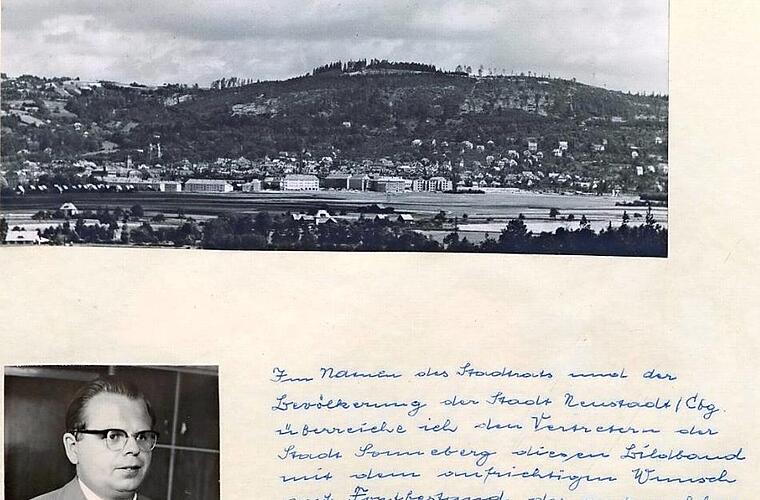 Im Namen des Stadtrats und der
Bevölkerung der Stadt Neustadt/Cbg.
überreiche ich den Vertretern der
Stadt Sonneberg diesen Bildband
mit dem aufrichtigen Wunsch